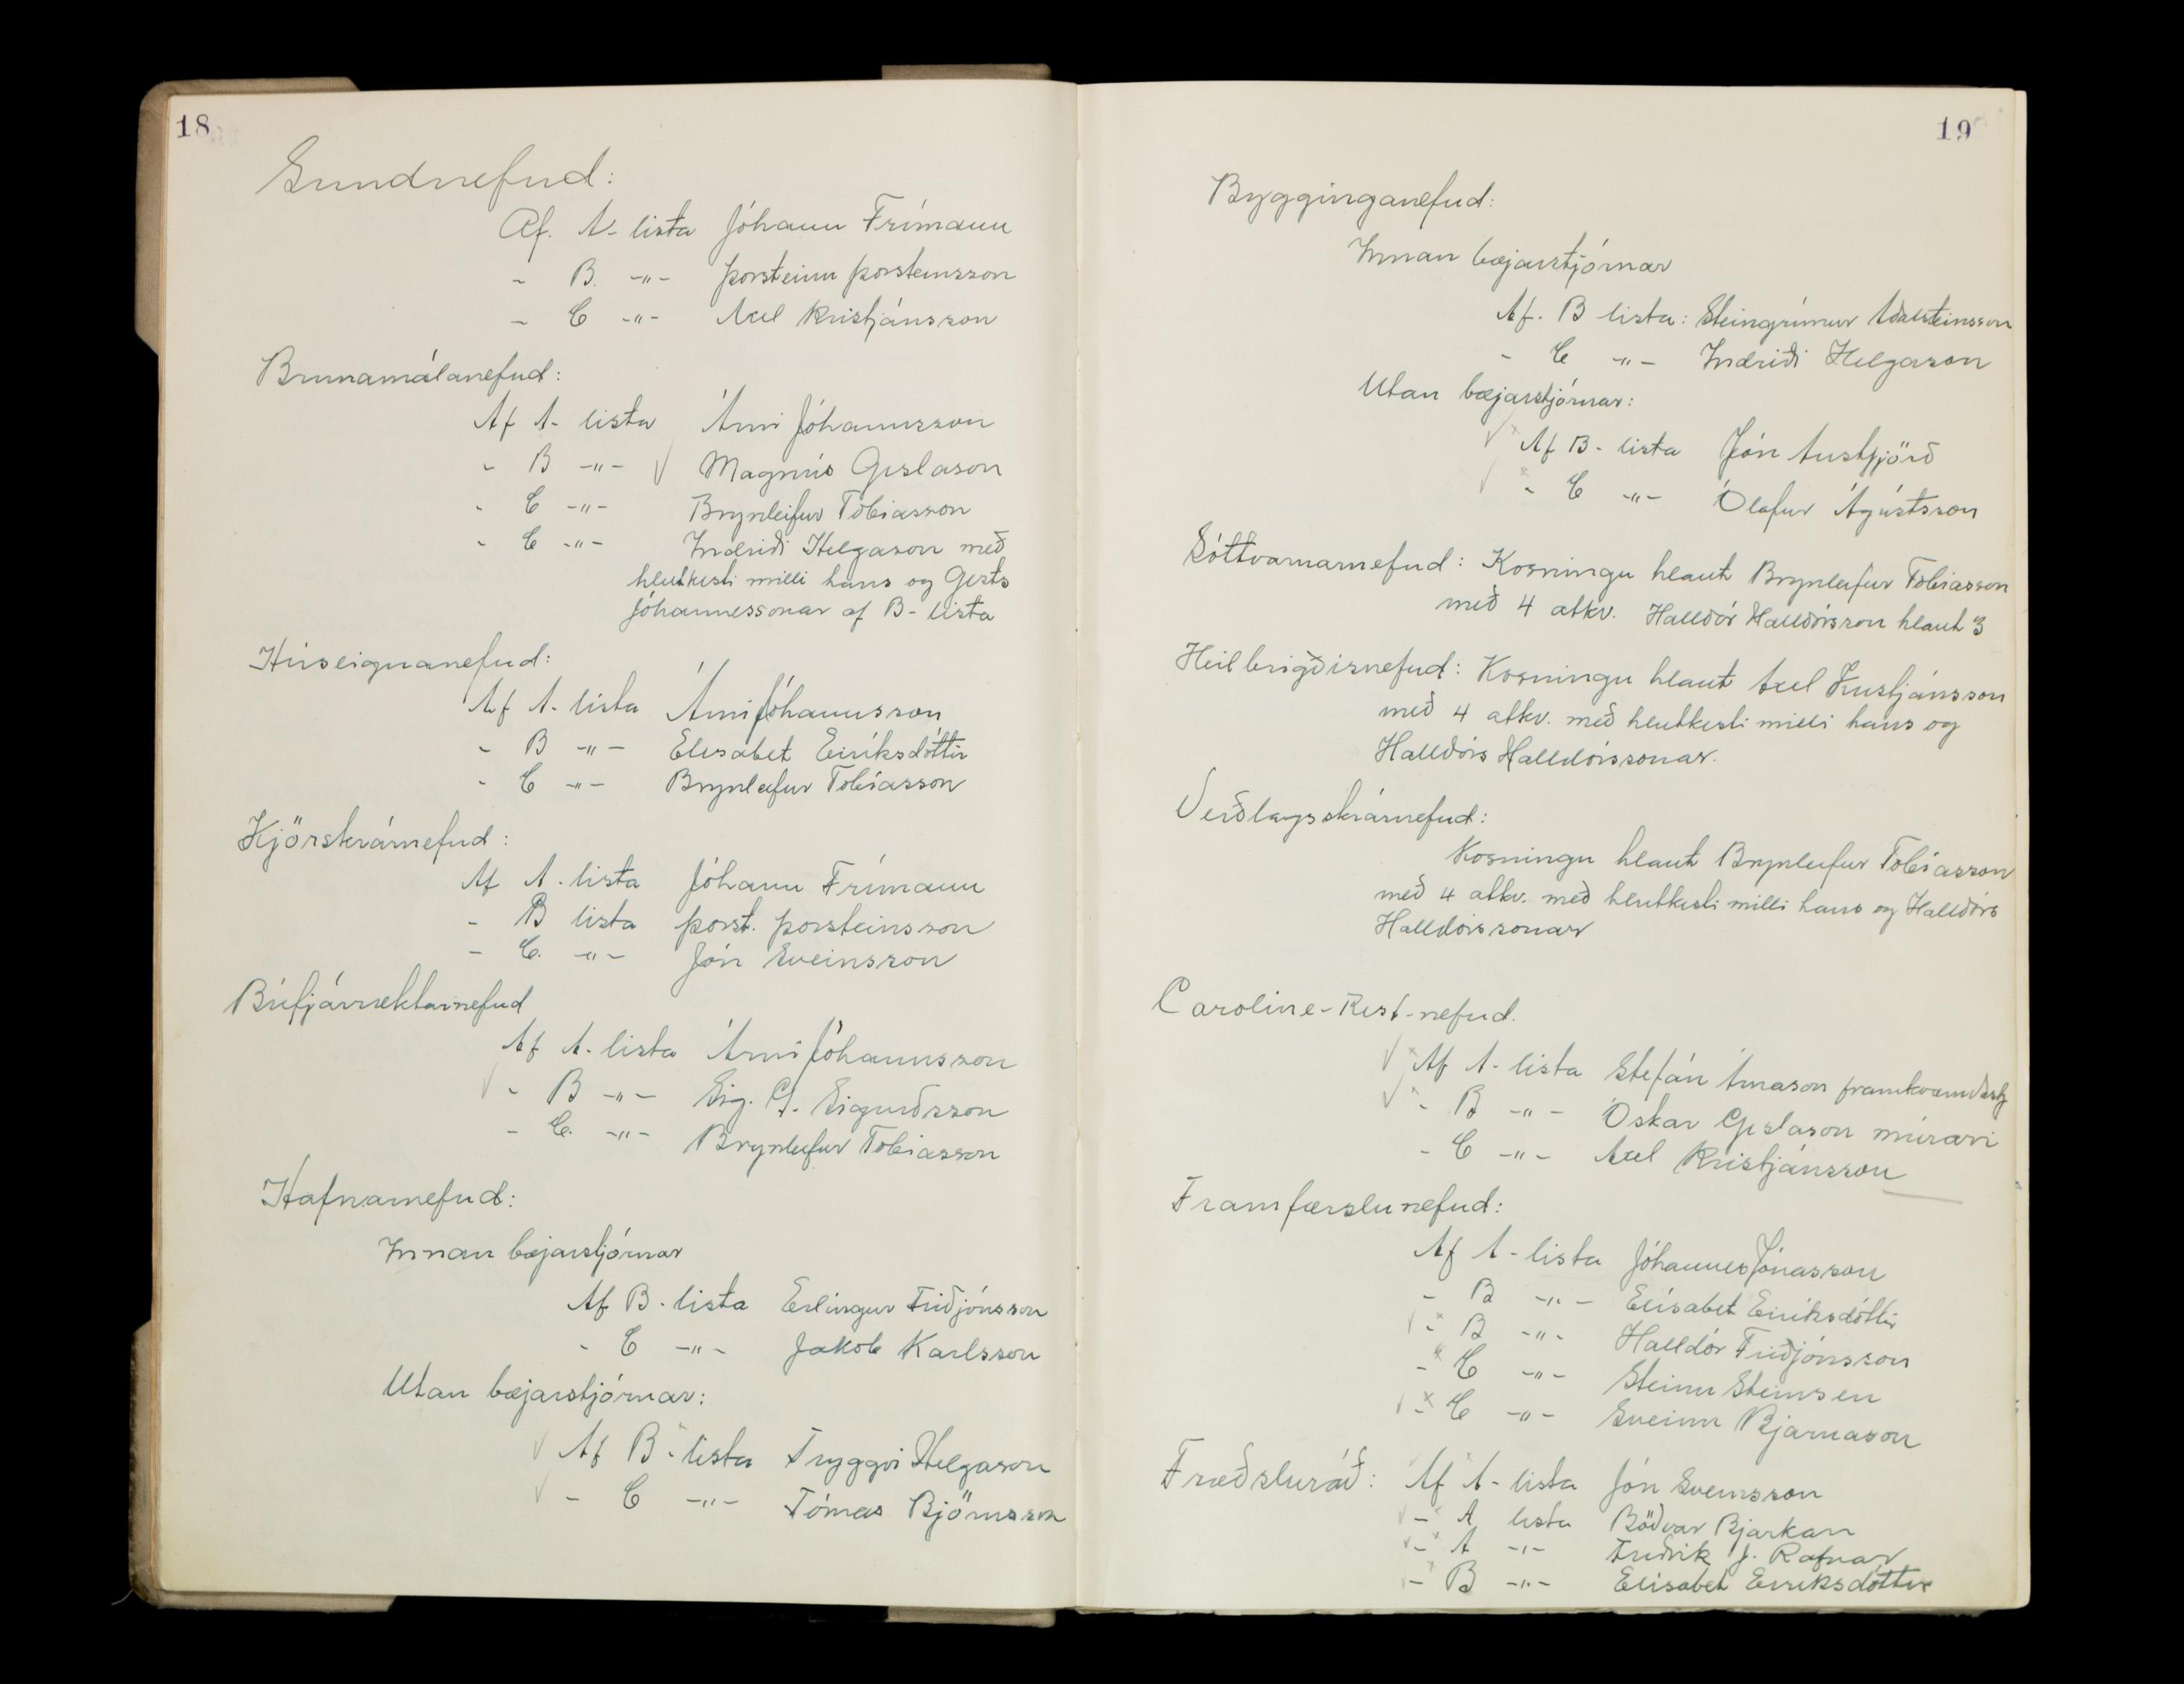 18
Sundnefnd:
Af. A- lista Jóhann Frímann
- B. -"- Þorsteinn Þorsteinsson
- C -"- Axel Kristjánsson
Brunamálanefnd:
Af A- lista Árni Jóhannsson
- B -"- √ Magnús Gíslason
- C -"- Brynleifur Tobiasson
- C -"- Indriði Helgason með
hlutkesti milli hans og Gests
Jóhannessonar af B- lista
Húseignanefnd:
Af A- lista Árni Jóhannsson
- B -"- Elísabet Eiríksdóttir
- C -"- Brynleifur Tobíasson
Kjörskrárnefnd:
Af A- lista Jóhann Frímann
- B lista Þorst. Þorsteinsson
- C. -"- Jón Sveinsson
Búfjárræktarnefnd
Af A- lista Árni Jóhannsson
√ - B -"- Sig. G. Sigurðsson
- C. -"- Brynleifur Tobiasson
Hafnarnefnd:
Innan bæjarstjórnar
Af B- lista Erlingur Friðjónsson
- C -"- Jakob Karlsson
Utan bæjarstjórnar:
√ Af B- lista Tryggvi Helgason
√ - C -"- Tómas Björnsson
19
Bygginganefnd:
Innan bæjarstjórnar
Af. B lista: Steingrímur Aðalsteinsson
- C -"- Indriði Helgason
Utan bæjarstjórnar:
√ × Af B- lista Jón Austfjörð
√ × - C -"- Ólafur Ágústsson
Sóttvarnarnefnd: Kosningu hlaut Brynleifur Tobiasson
með 4 atkv. Halldór Halldórsson hlaut 3
Heilbrigðisnefnd: Kosningu hlaut Axel Kristjánsson
með 4 atkv. með hlutkesti milli hans og
Halldórs Halldórssonar.
Verðlagsskrárnefnd:
Kosningu hlaut Brynleifur Tobíasson
með 4 atkv. með hlutkesti milli hans og Halldórs
Halldórssonar
Caroline-Rest-nefnd.
√ × Af A- lista Stefán Árnason framkvæmdastj
√ × - B -"- Óskar Gíslason múrari
- C -"- Axel Kristjánsson
Framfærslunefnd:
Af A- lista Jóhannes Jónasson
- B -"- Elísabet Eiríksdóttir
√ × - B -"- Halldór Friðjónsson
- × C -"- Steinn Steinsen
√ × - C -"- Sveinn Bjarnason
Fræðsluráð: Af A- lista Jón Sveinsson
√ - × A lista Böðvar Bjarkan
√ - × A -"- Friðrik J. Rafnar
√ - × B -"- Elísabet Eiríksdóttir